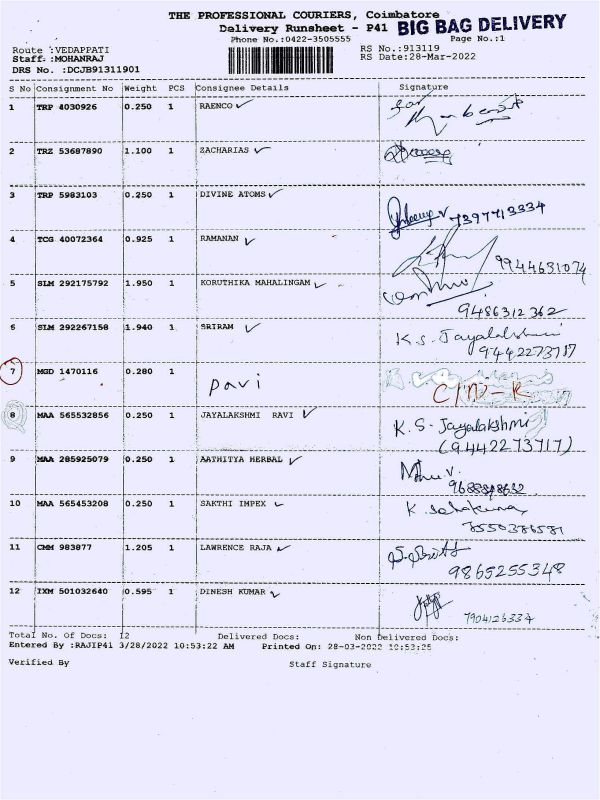 THE PROFESSIONAL COURIERS, Coimbatore
Delivery Runsheet - P41 BIG BAG DELIVERY
Phone No.:0422-3505555 Page No.:1
Route :VEDAPPATI RS No.:913119
Staff :MOHANRAJ RS Date:28-Mar-2022
DRS No. :DCJB91311901
S No Consignment No Weight PCS Consignee Details Signature
1 TRP 4030926 0.250 1 RAENCO for
2 TRZ 53687890 1.100 1 ZACHARIAS
3 TRP 5983103 0.250 1 DIVINE ATOMS 7397713334
4 TCG 40072364 0.925 1 RAMANAN 9944631074
5 SLM 292175792 1.950 1 KORUTHIKA MAHALINGAM
9486312362
6 SLM 292267158 1.940 1 SRIRAM K.S. Jayalakshmi
9442273717
7 MGD 1470116 0.280 1 Pavi
C/N-R
8 MAA 565532856 0.250 1 JAYALAKSHMI RAVI K.S. Jayalakshmi
(9442273717)
9 MAA 285925079 0.250 1 AATHITYA HERBAL
10 MAA 565453208 0.250 1 SAKTHI IMPEX
11 CMM 983877 1.205 1 LAWRENCE RAJA
9865255348
12 IXM 501032640 0.595 1 DINESH KUMAR
7904126334
Total No. Of Docs: 12 Delivered Docs: Non Delivered Docs:
Entered By :RAJIP41 3/28/2022 10:53:22 AM Printed On: 28-03-2022 10:53:25
Verified By Staff Signature